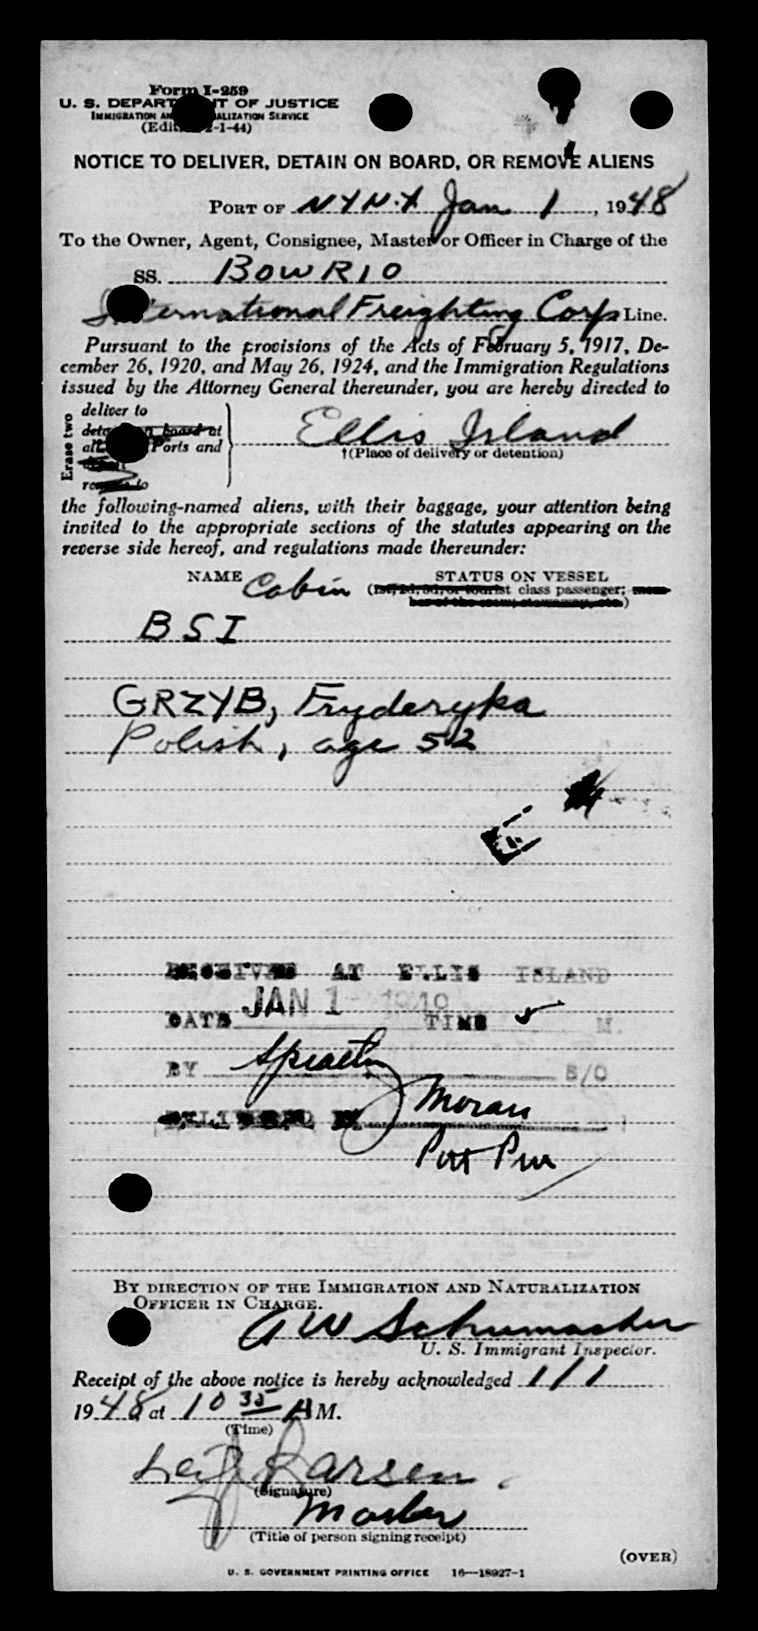 Form I-259
U. S. DEPARTMENT OF JUSTICE
IMMIGRATION AND NATURALIZATION SERVICE
(Edition 2-1-44)
NOTICE TO DELIVER, DETAIN ON BOARD, OR REMOVE ALIENS
PORT OF N Y N.Y. Jan 1, 1948
To the Owner, Agent, Consignee, Master or Officer in Charge of the
SS. BOWRIO
International Freighting Corp Line.
Pursuant to the provisions of the Acts of February 5, 1917, De-
cember 26, 1920, and May 26, 1924, and the Immigration Regulations
issued by the Attorney General thereunder, you are hereby directed to
Erase two
deliver to
detain on board at
all Ports and
remove to
Ellis Island
†(Place of delivery or detention)
the following-named aliens, with their baggage, your attention being
invited to the appropriate sections of the statutes appearing on the
reverse side hereof, and regulations made thereunder:
NAME Cabin STATUS ON VESSEL
(1st, 2d, 3d, or tourist class passenger; mem-
ber of the crew, stowaway, etc.)
BSI
GRZYB, Fryderyka
Polish, age 52
RECEIVED AT ELLIS ISLAND
DATE JAN 1 - TIME M.
BY S/O
DELIVERED BY
Moran
By DIRECTION OF THE IMMIGRATION AND NATURALIZATION
OFFICER IN CHARGE.
A W Schumacher
U. S. Immigrant Inspector.
Receipt of the above notice is hereby acknowledged 1/1
1948 at 10 35 A M.
(Time)
Leif Larsen
(Signature)
Master
(Title of person signing receipt)
(OVER)
U. S. GOVERNMENT PRINTING OFFICE 16—18927-1